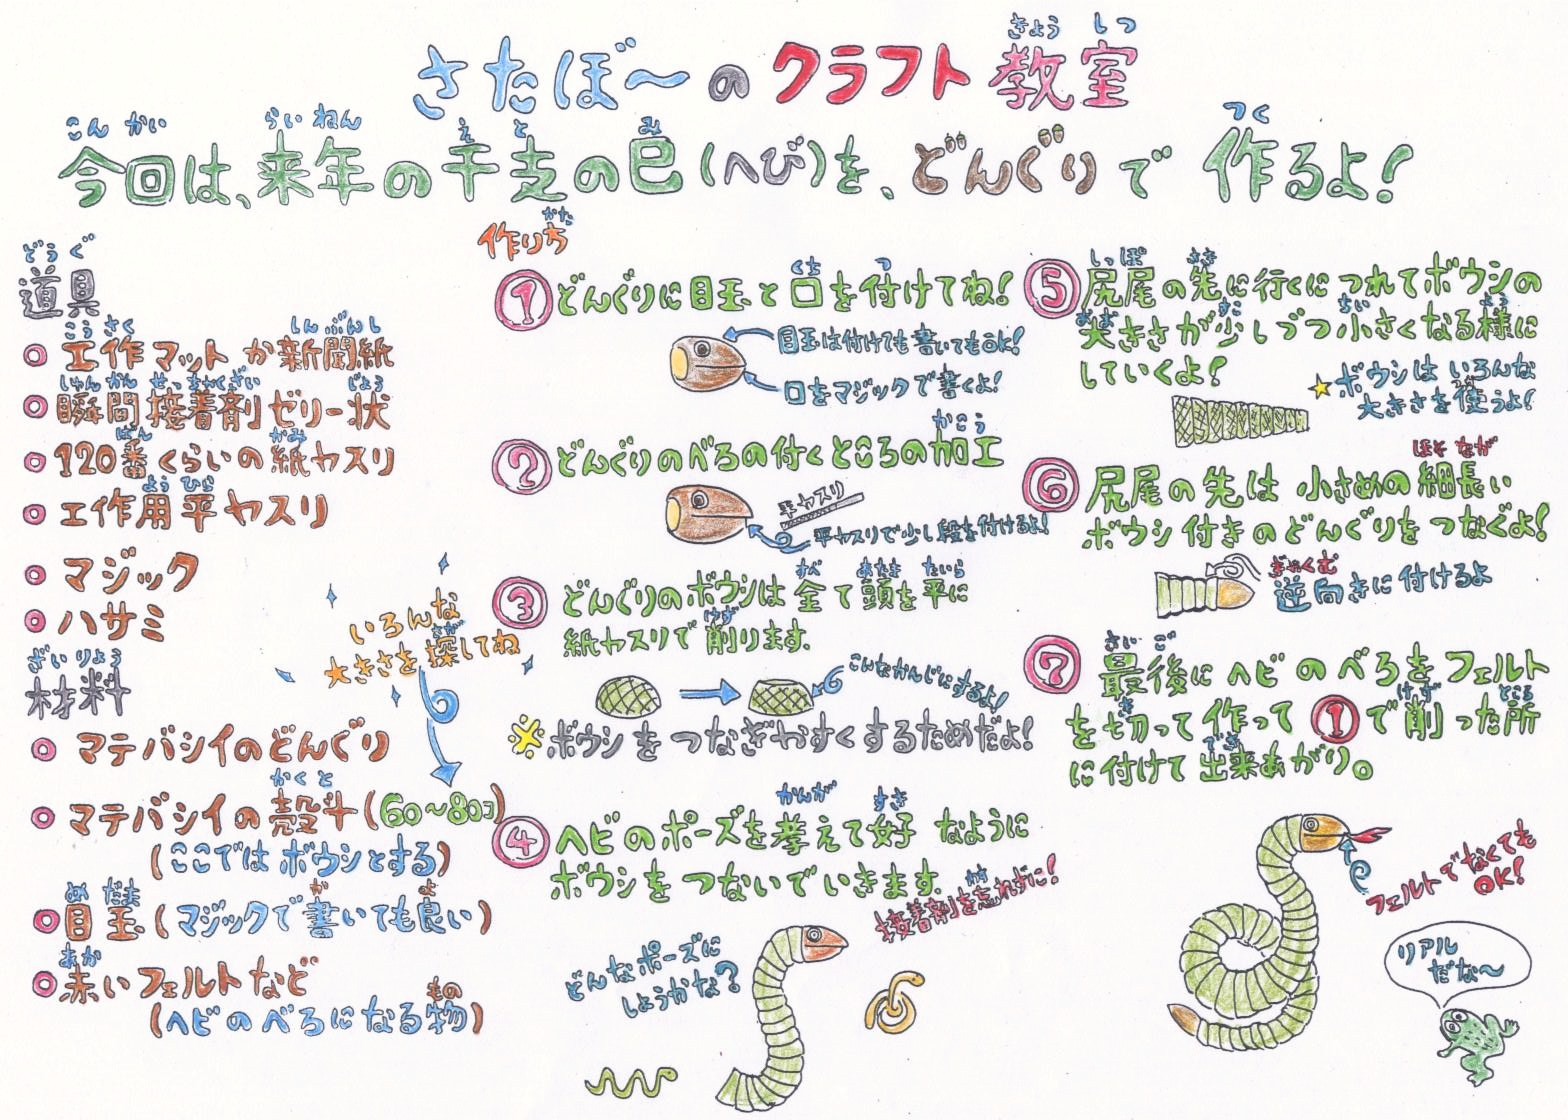 さたぼ〜のクラフト教室
今回は、来年の干支の巳(へび)を、どんぐりで作るよ!
道具
工作マットか新聞紙
瞬間接着剤ゼリー状
120番くらいの紙ヤスリ
工作用平ヤスリ
マジック
ハサミ
材料
いろんな
大きさを探してね
マテバシイのどんぐり
マテバシイの殻斗(60〜80コ)
(ここではボウシとする)
目玉(マジックで書いても良い)
赤いフェルトなど
(ヘビのべろになる物)
作り方
①どんぐりに目玉と口を付けてね!
目玉は付けても書いてもOK!
口をマジックで書くよ!
②どんぐりのべろの付くところの加工
平ヤスリ
平ヤスリで少し段を付けるよ!
③どんぐりのボウシは全て頭を平に
紙ヤスリで削ります。
こんなかんじにするよ!
※ボウシをつなぎやすくするためだよ!
④ヘビのポーズを考えて好子なように
ボウシをつないでいきます。
接着剤を忘れずに!
どんなポーズに
しようかな?
⑤尻尾の先に行くにつれてボウシの
大きさが少しづつ小さくなる様に
していくよ!
ボウシはいろんな
大きさを使うよ!
⑥尻尾の先は小さめの細長い
ボウシ付きのどんぐりをつなぐよ!
逆向きに付けるよ
⑦最後にヘビのべろをフェルト
を切って作って①で削った所
に付けて出来あがり。
フェルトでなくても
OK!
リアル
だな〜